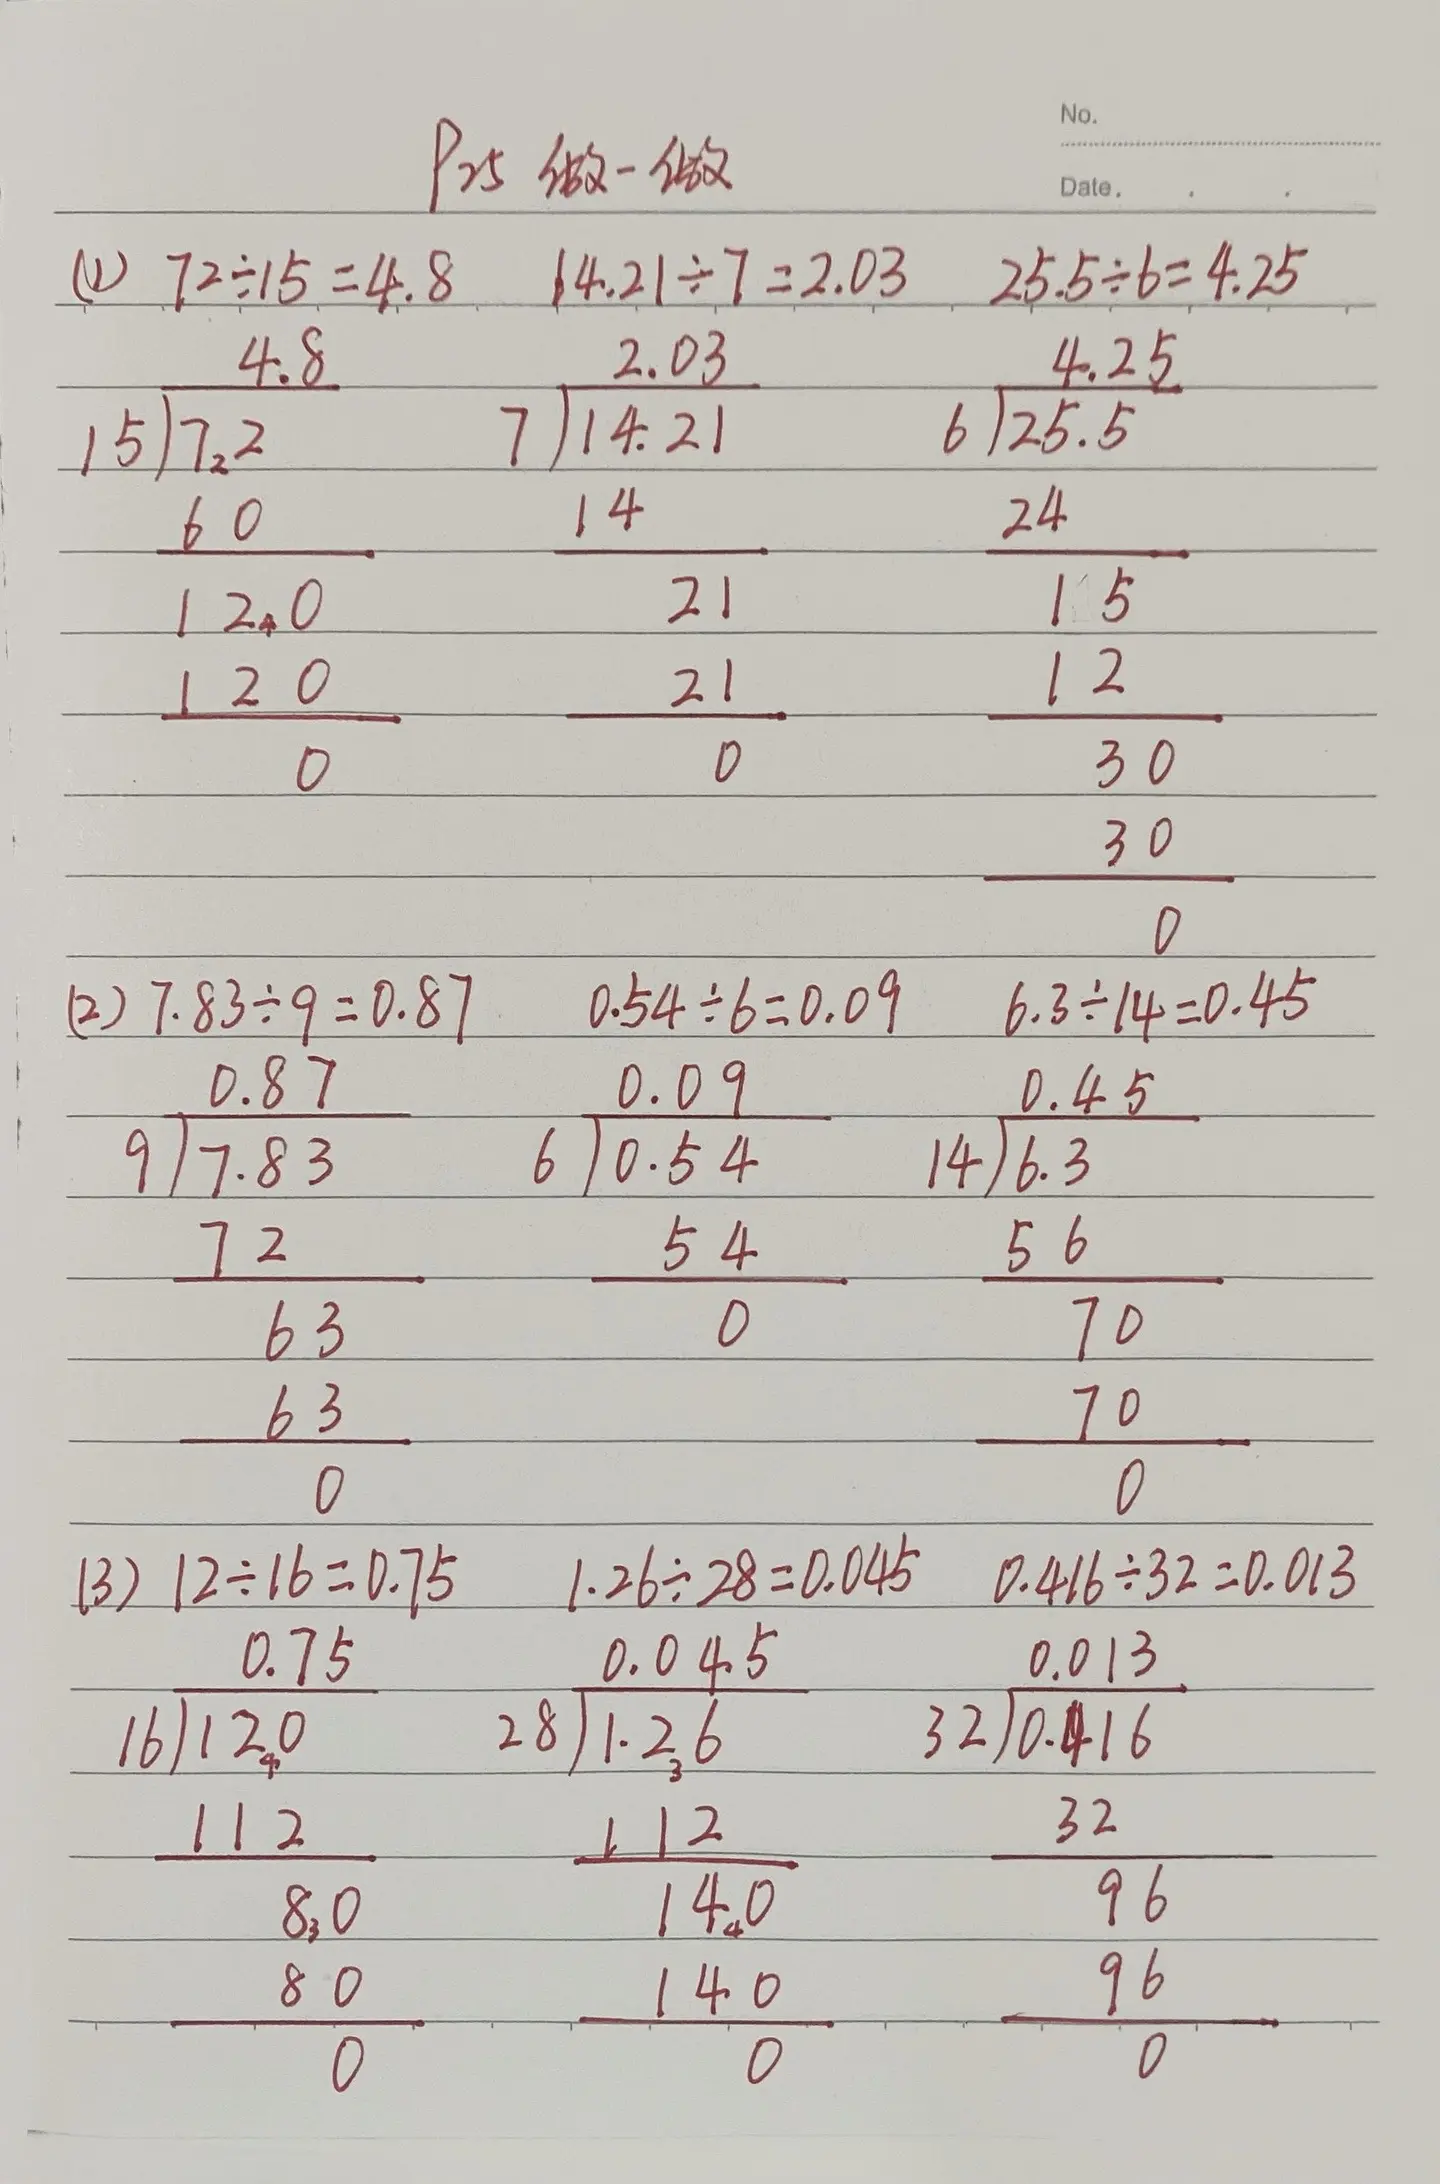 No.
P25 做一做
Date.
(1) 72÷15=4.8 14.21÷7=2.03 25.5÷6=4.25
4.8 2.03 4.25
15)7₂2 7)14.21 6)25.5
60 14 24
12₄0 21 15
120 21 12
0 0 30
30
0
(2) 7.83÷9=0.87 0.54÷6=0.09 6.3÷14=0.45
0.87 0.09 0.45
9)7.83 6)0.54 14)6.3
72 54 56
63 0 70
63 70
0 0
(3) 12÷16=0.75 1.26÷28=0.045 0.416÷32=0.013
0.75 0.045 0.013
16)12₄0 28)1.2₃6 32)0.416
112 112 32
8₃0 14₄0 96
80 140 96
0 0 0